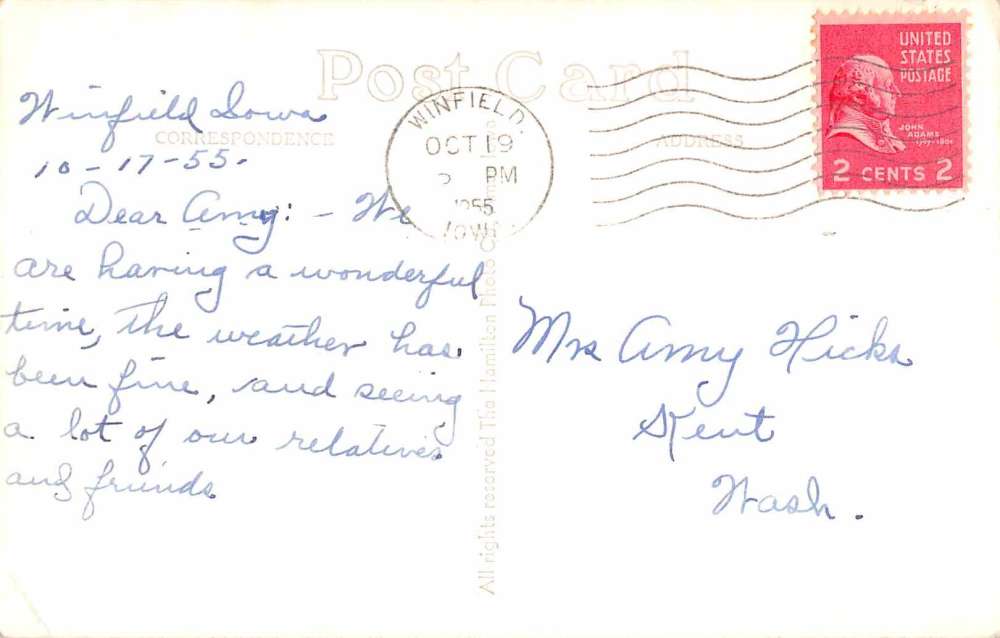 Post Card
CORRESPONDENCE
ADDRESS
UNITED
STATES
POSTAGE
JOHN
ADAMS
2 CENTS 2
WINFIELD.
OCT 19
PM
1955
IOWA
Winfield Iowa
10-17-55.
Dear Amy: - We
are having a wonderful
time, the weather has
been fine, and seeing
a lot of our relatives
and friends
All rights reserved The Hamilton Photo
Mrs Amy Hicks
Kent
Wash.